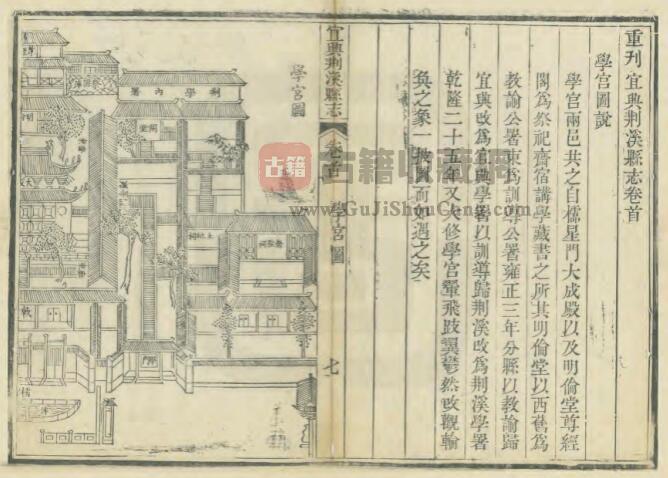 重刊宜興荆溪縣志卷首
學宮圖說
學宮兩邑共之自櫺星門大成殿以及明倫堂尊經
閣爲祭祀齋宿講學藏書之所其明倫堂以西舊爲
教諭公署東爲訓導公署雍正三年分縣以教諭歸
宜興改爲宜興學署以訓導歸荆溪改爲荆溪學署
乾隆二十五年又大修學宮翬飛跂翼鬱然改觀輪
奐之象一披圖而如遇之矣
宜興荆溪縣志
卷首
學宮圖
七
學宮圖
荆學內署
土地祠
古籍收藏网
www.GuJiShouCang.com
古籍